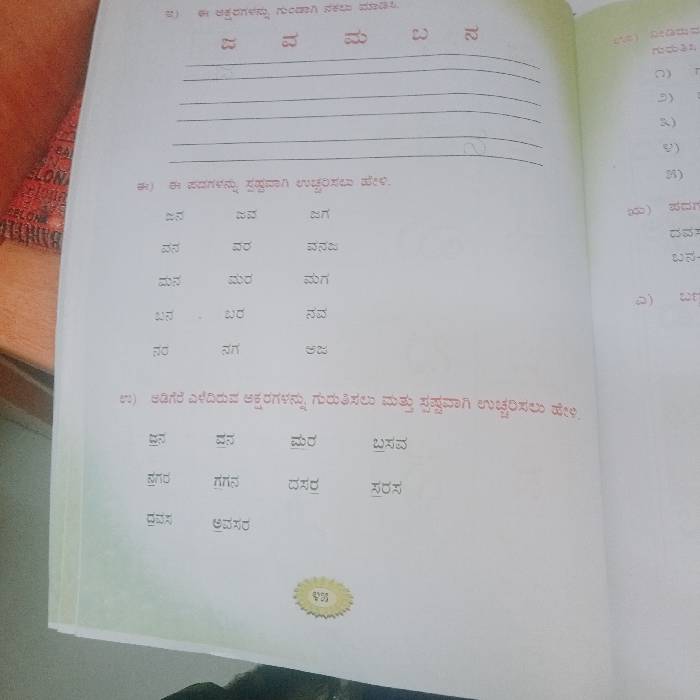 ಇ) ಈ ಅಕ್ಷರಗಳನ್ನು ಗುಂಡಾಗಿ ನಕಲು ಮಾಡಿಸಿ.
ಜ ವ ಮ ಬ ನ
ಈ) ಈ ಪದಗಳನ್ನು ಸ್ಪಷ್ಟವಾಗಿ ಉಚ್ಚರಿಸಲು ಹೇಳಿ.
ಜನ ಜವ ಜಗ
ವನ ವರ ವನಜ
ಮನ ಮರ ಮಗ
ಬನ ಬರ ನವ
ನರ ನಗ ಅಜ
ಉ) ಅಡಿಗೆರೆ ಎಳೆದಿರುವ ಅಕ್ಷರಗಳನ್ನು ಗುರುತಿಸಲು ಮತ್ತು ಸ್ಪಷ್ಟವಾಗಿ ಉಚ್ಚರಿಸಲು ಹೇಳಿ.
ಜನ ವನ ಮರ ಬಸವ
ನಗರ ಗಗನ ದಸರ ಸರಸ
ದವಸ ಅವಸರ
೪೫
೧)
೨)
೩)
೪)
೫)
ಎ)